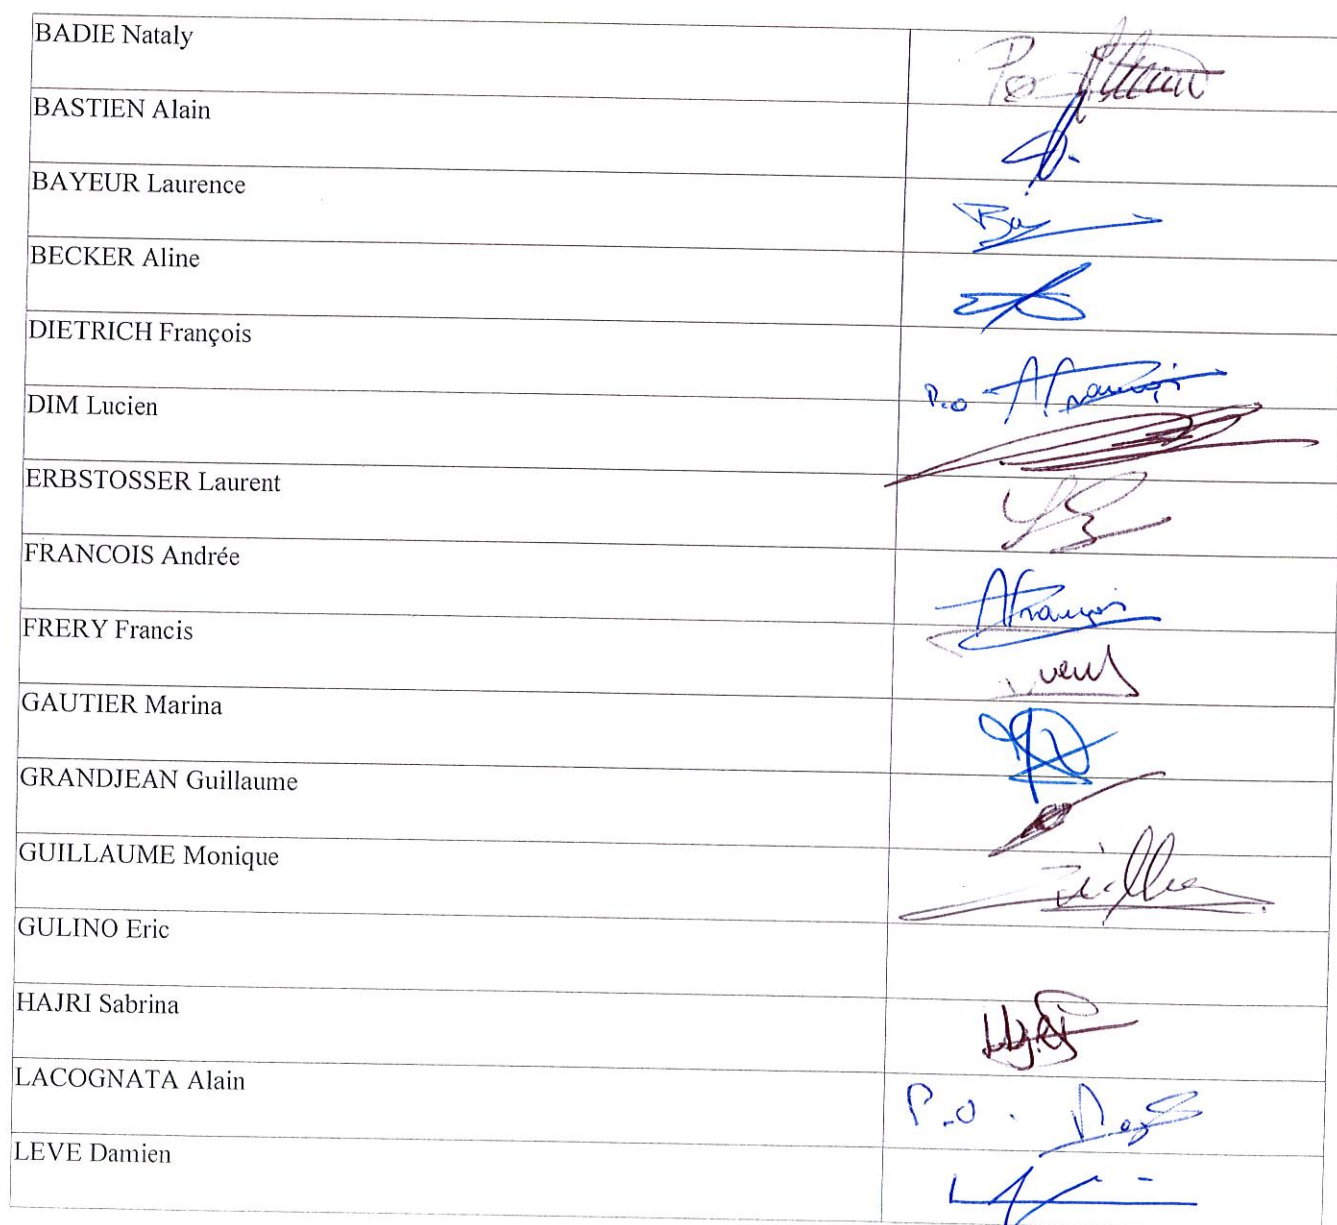 BADIE Nataly
Po
BASTIEN Alain
BAYEUR Laurence
Bay
BECKER Aline
DIETRICH François
P.o AFrançois
DIM Lucien
ERBSTOSSER Laurent
FRANCOIS Andrée
AFrançois
FRERY Francis
GAUTIER Marina
GRANDJEAN Guillaume
GUILLAUME Monique
GULINO Eric
HAJRI Sabrina
LACOGNATA Alain
P.O.
LEVE Damien